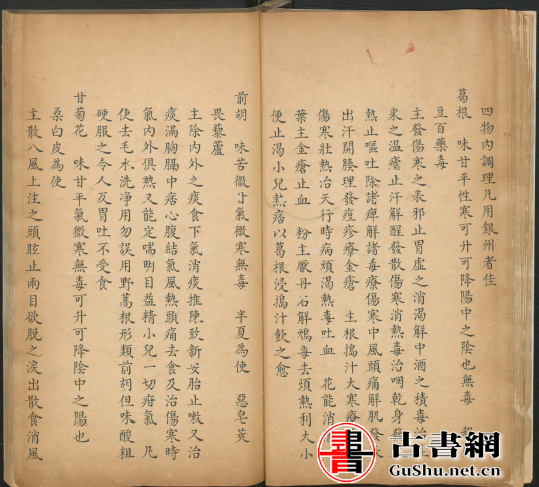 四物內調理凡用銀州者佳
葛根 味甘平性寒可升可降陽中之陰也無毒
豆百藥毒
主發傷寒之表邪止胃虛之消渴解中酒之積毒治
來之溫瘧止汗解酲發散傷寒消熱毒治咽乾身發
熱止嘔吐除諸痺解諸毒療傷寒中風頭痛解肌發
出汗開腠理發痘疹療金瘡 生根搗汁大寒療
傷寒壯熱治天行時病煩渴熱毒吐血 花能消
葉主金瘡止血 粉主厭丹石解鴆毒去煩熱利大小
便止渴小兒熱痞以葛根浸搗汁飲之愈
前胡 味苦微甘氣微寒無毒 半夏為使 惡皂莢
畏藜蘆
主除內外之痰食下氣消痰推陳致新安胎止嗽又治
痰滿胸膈中痞心腹結氣風熱頭痛去食及治傷寒時
氣內外俱熱又能定喘明目益精小兒一切疳氣 凡
使去毛水洗淨用勿誤用野葛根形類前胡但味酸粗
硬服之令人反胃吐不受食
甘菊花 味甘平氣微寒無毒可升可降陰中之陽也
桑白皮為使
主散八風上注之頭眩止兩目欲脫之淚出散食消風
古書網
GuShu.net.cn